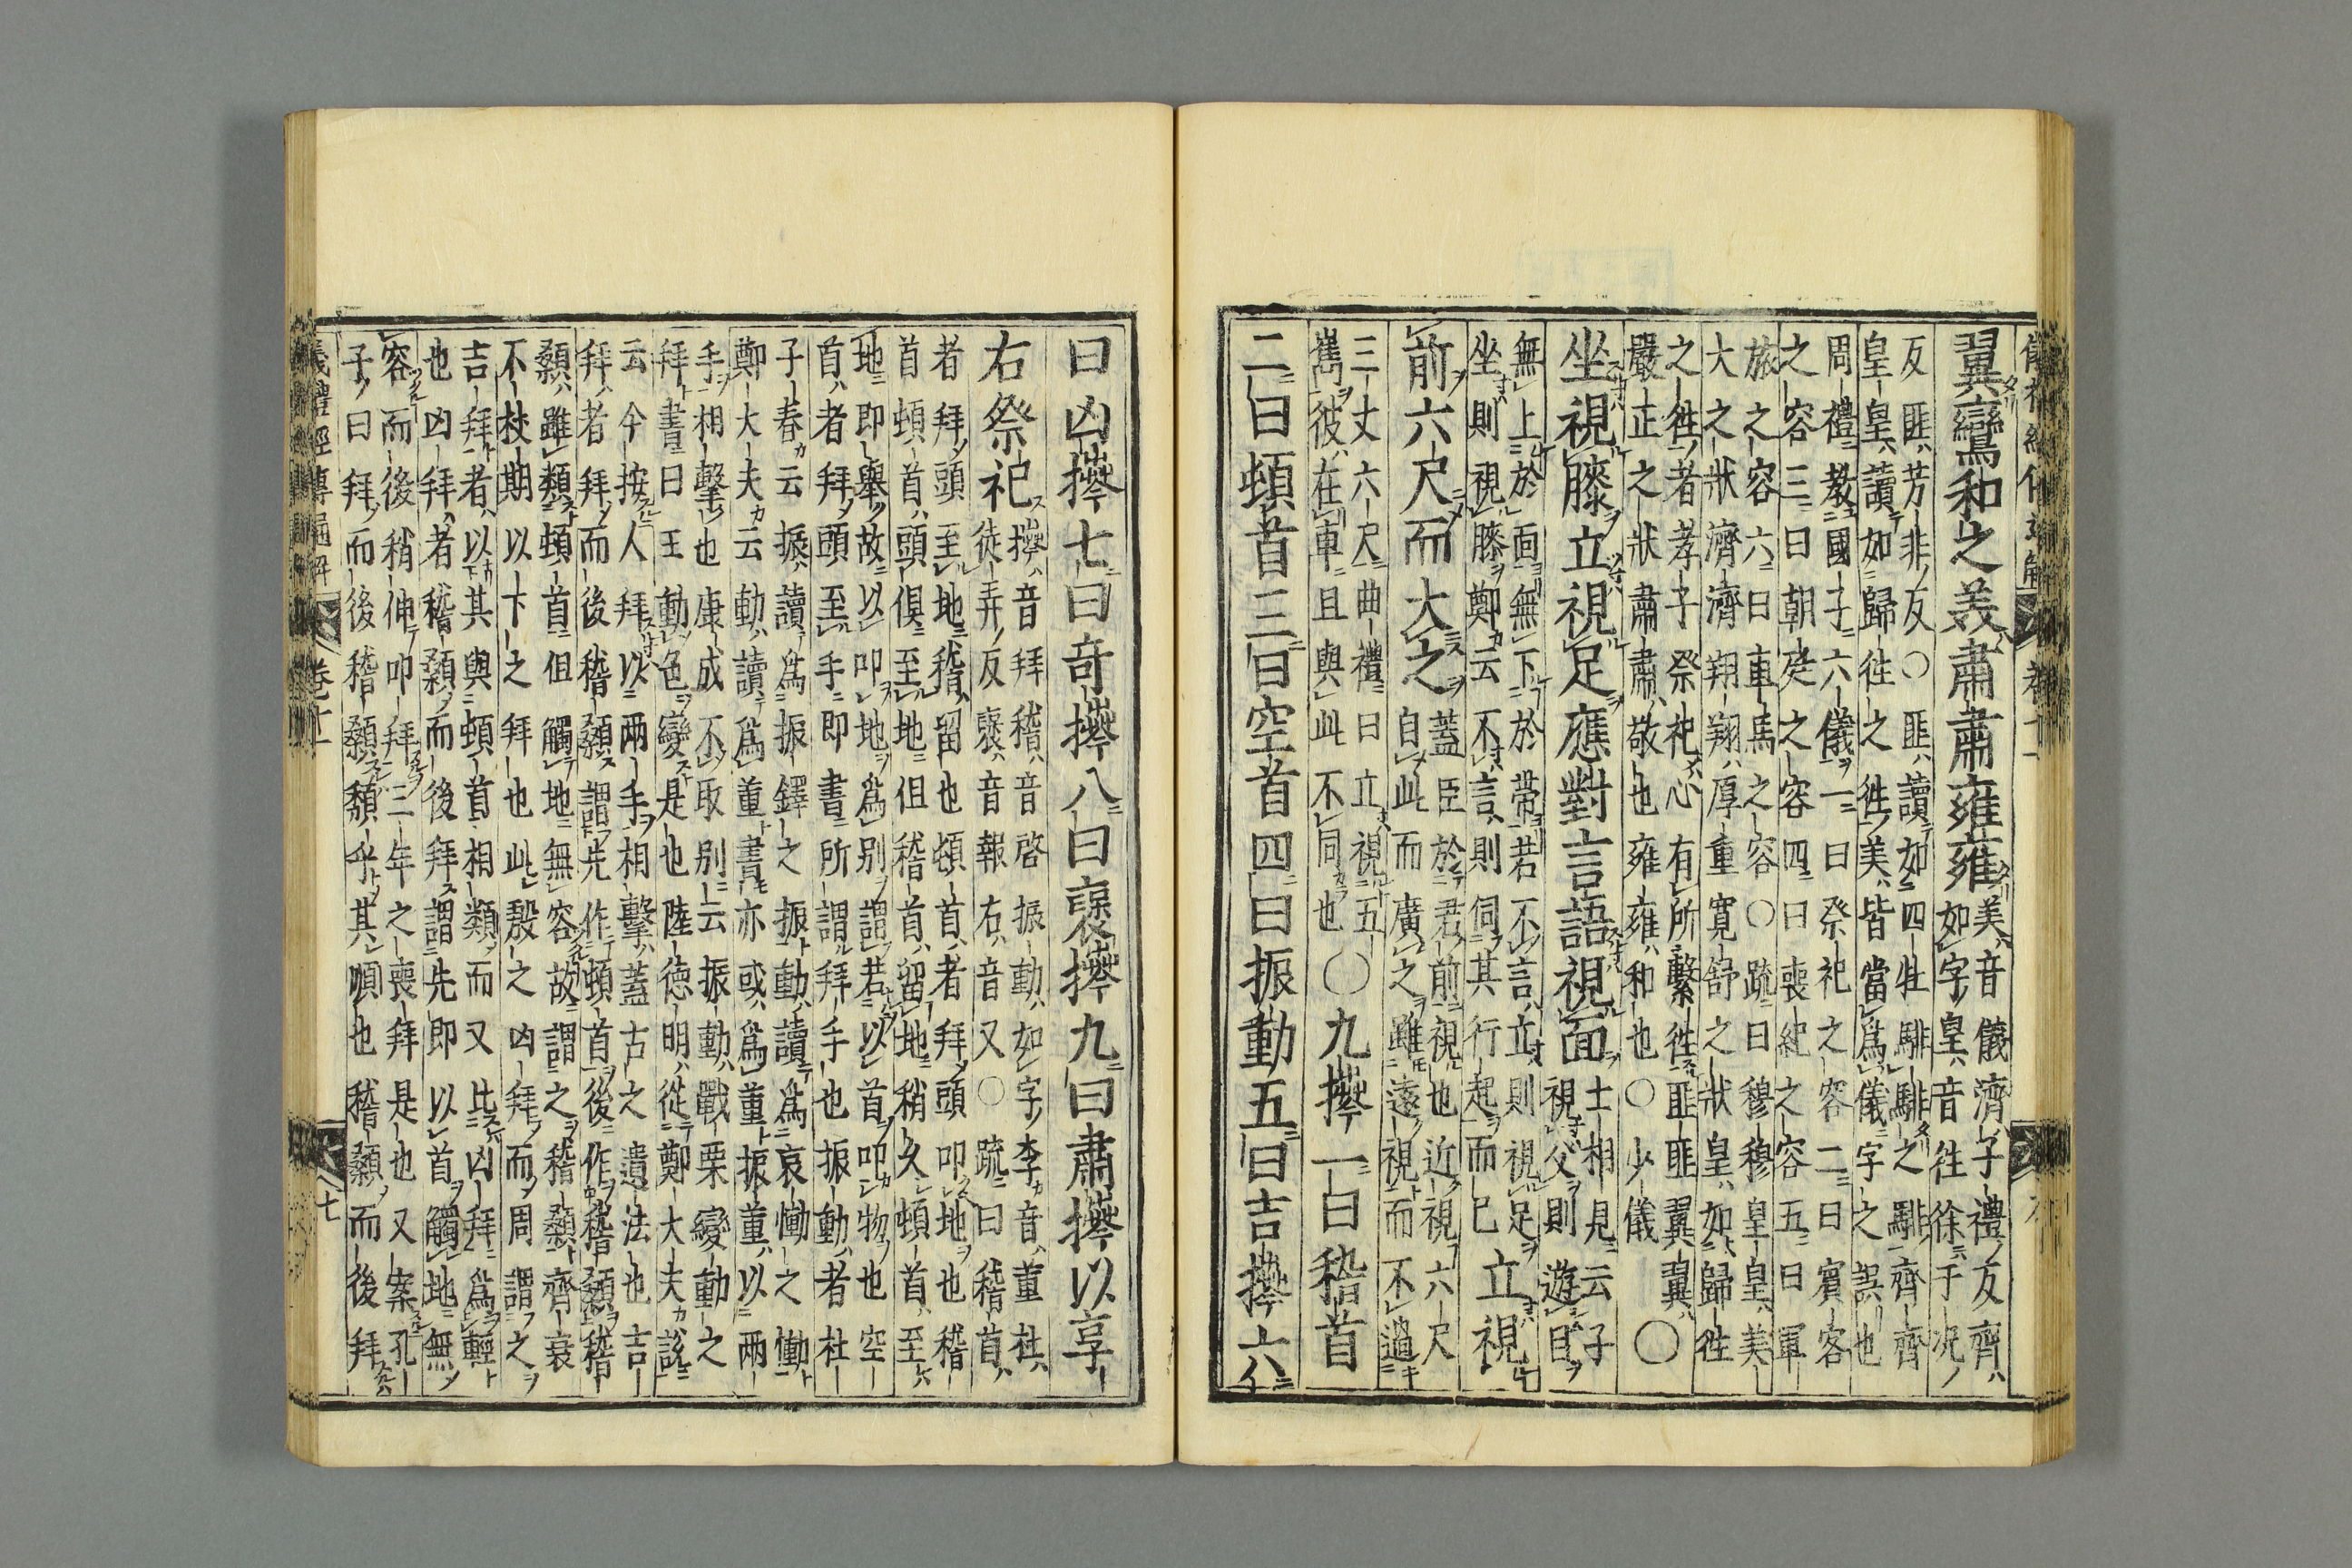 翼鸞和之美肅肅雍雍
美音儀濟子禮反齊
如字皇音往徐于況
反匪芳非反○匪讀如四牡騑騑之騑齊齊
皇皇讀如歸往之往美皆當爲儀字之誤也
周禮教國子六儀一曰祭祀之容二曰賓客
之容三曰朝廷之容四曰喪紀之容五曰軍
旅之容六曰車馬之容○疏曰穆穆皇皇美
大之狀濟濟翔翔厚重寬舒之狀皇如歸往
之往者孝子祭祀心有所繫往匪匪翼翼
嚴正之狀肅肅敬也雍雍和也○少儀
○
坐視膝立視足應對言語視面
士相見云子
視父則遊目
無上於面無下於帶若不言立則視足
坐則視膝鄭云不言則伺其行起而已
立視
前六尺而大之
蓋臣於君前視也近視六尺
自此而廣之雖遠視而不過
三丈六尺曲禮曰立視五
巂彼在車且與此不同也
○九𢷎一曰稽首
二曰頓首三曰空首四曰振動五曰吉𢷎六
曰凶𢷎七曰奇𢷎八曰襃𢷎九曰肅𢷎以享
右祭祀
𢷎音拜稽音啓振動如字李音董杜
徒弄反襃音報右音又○疏曰稽首
者拜頭至地稽留也頓首者拜頭叩地也稽
首頓首頭俱至地但稽首留地稍久頓首至
地即舉故以叩地爲別謂若以首叩物也空
首者拜頭至手即書所謂拜手也振動者杜
子春云振讀爲振鐸之振動讀爲哀慟之慟
鄭大夫云動讀爲董書亦或爲董振董以兩
手相擊也康成不取別云振動戰栗變動之
拜書曰王動色變是也陸德明從鄭大夫該
云今按人拜以兩手相擊蓋古之遺法也吉
拜者拜而後稽顙謂先作頓首後作稽顙稽
顙雖類頓首但觸地無容故謂之稽顙齊衰
不杖期以下之拜也此殷之凶拜而周謂之
吉拜者以其與頓首相類而又比凶拜爲輕
也凶拜者稽顙而後拜謂先即以首觸地無
容而後稍伸叩拜三年之喪拜是也又案孔
子曰拜而後稽顙頹乎其順也稽顙而後拜
儀禮經傳通解 卷十一 七